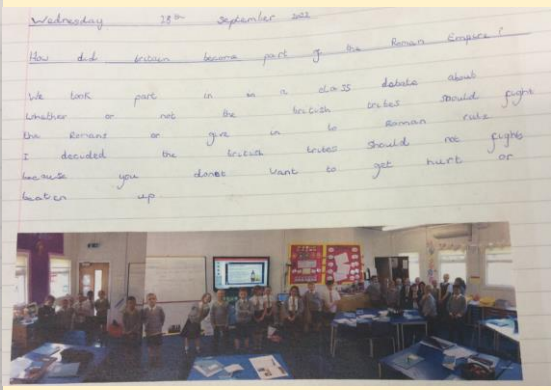 Wednesday 28th September 2022
How did britain become part of the Roman Empire?
We took part in a class debate about
whether or not the british tribes should fight
the Romans or give in to Roman rule
I decided the british tribes should not fight
because you donot want to get hurt or
beaten up